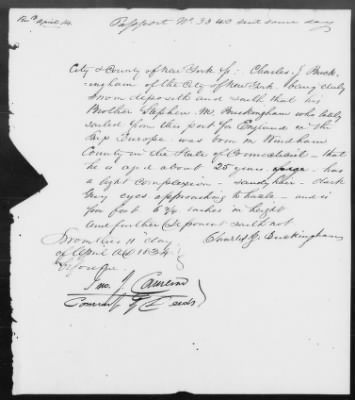 Passport No. 3340 sent same day
City & County of New York Ss. Charles J. Buck-
-ingham of the City of New York being duly
sworn deposeth and saith that his
Brother Stephen M. Buckingham who lately
sailed from this port for England in the
Ship Europe was born in Windham
County in the State of Connecticut - that
he is aged about 25 years has
a light complexion - sandy hair - dark
Grey eyes approaching to hazle - and is
five feet 6 3/4 inches in height
and further Deponent saith not
Sworn this 11 day
Charles J. Buckingham
of April AD 1834
before me
Jno. J.
Comr. of Deeds